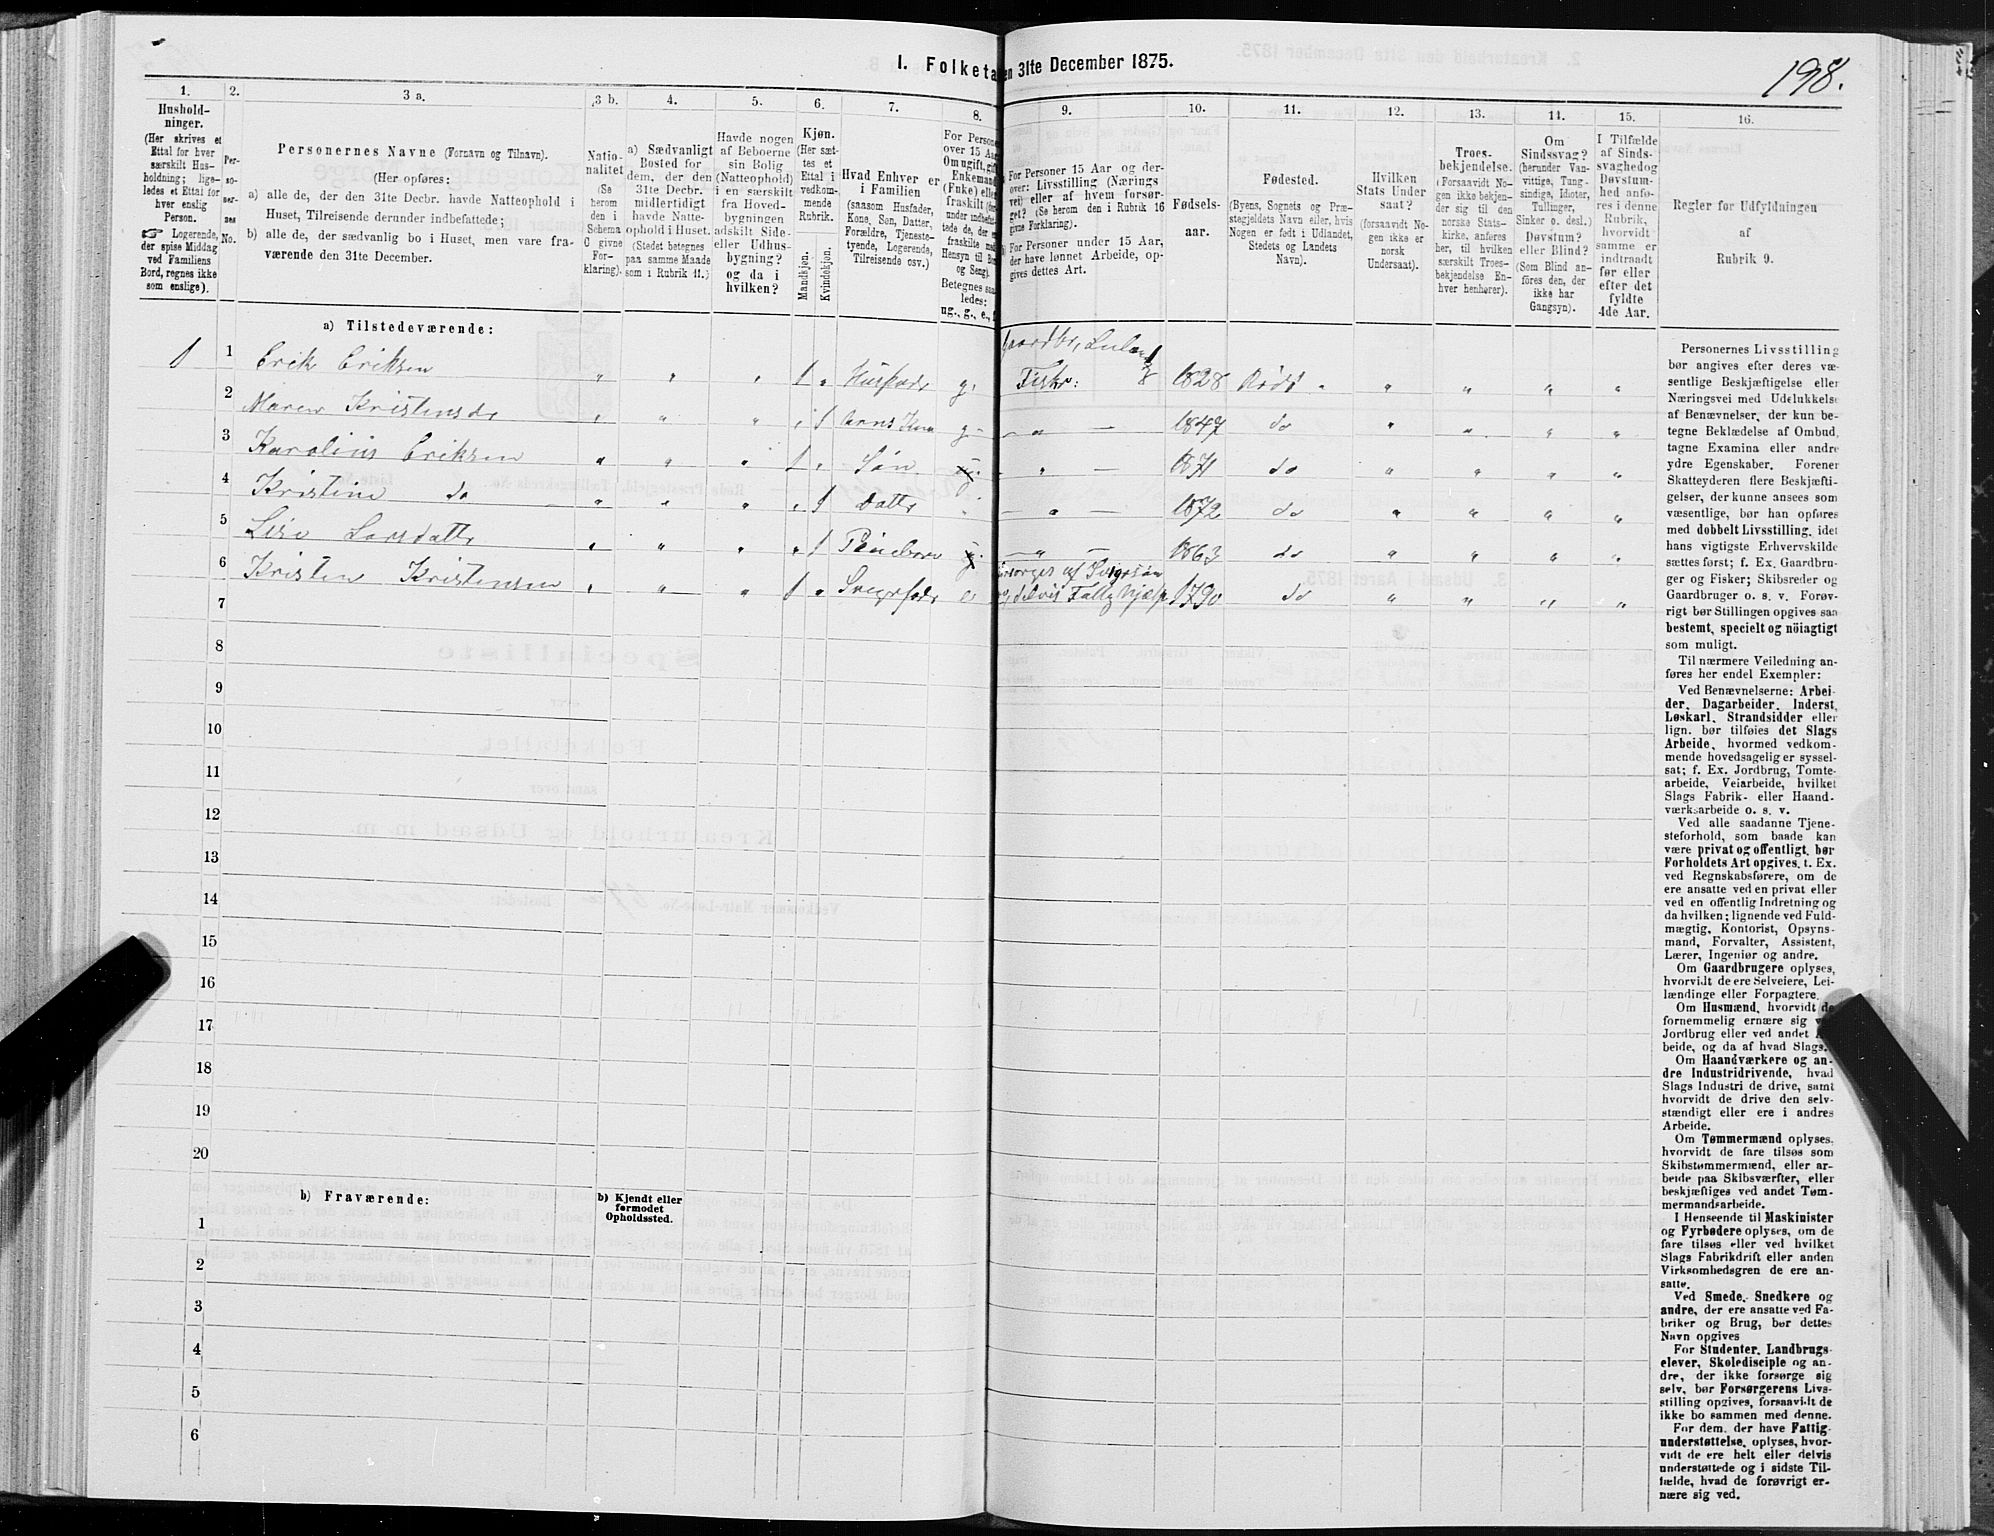 198.
1. Folketa en 31te December 1875.
1. 2. 3 a. 3 b. 4. 5. 6. 7. 8. 9. 10. 11. 12. 13. 14. 15. 16.
Hushold-
ninger.
(Her skrives et
Ettal for hver
særskilt Hus-
holdning; lige-
ledes et Ettal for
hver enslig
Person.
☞ Logerende,
der spise Middag
ved Familiens
Bord, regnes ikke
som enslige).
Per-
so-
ner-
nes
No.
Personernes Navne (Fornavn og Tilnavn).
(Her opføres:
a) alle de, der den 31te Decbr. havde Natteophold i
Huset, Tilreisende derunder indbefattede;
b) alle de, der sædvanlig bo i Huset, men vare fra-
værende den 31te December.
Natio-
nalitet
(Se
herom
den i
Schema
C givne
For-
klaring).
a) Sædvanligt
Bosted for
dem, der den
31te Decbr.
midlertidigt
havde Natte-
ophold i Huset.
(Stedet betegnes
paa samme Maade
som i Rubrik 11.)
Havde nogen
af Beboerne
sin Bolig
(Natteophold)
i en særskilt
fra Hoved-
bygningen
adskilt Side-
eller Udhus-
bygning?
og da i
hvilken?
Kjøn.
(Her sæt-
tes et
Ettal i
vedkom-
mende
Rubrik.
Mandkjøn.
Kvindekjøn.
Hvad Enhver er
i Familien
(saasom Husfader,
Kone, Søn, Datter,
Forældre, Tjeneste-
tyende, Logerende,
Tilreisende osv.)
For Persone
over 15 Aa
Om ugift, gif
Enkemand
(Enke) elle
fraskilt
under indbefat-
tede de, der
fraskilte me
Hensyn til Bo
og Seng).
Betegnes saa
ledes:
ug., g., e.,
For Personer 15 Aar og der-
over: Livsstilling (Nærings
vei) eller af hvem forsør-
get? (Se herom den i Rubrik 16
givne Forklaring).
For Personer under 15 Aar,
der have lønnet Arbeide, op-
gives dettes Art.
Fødsels-
aar.
Fødested.
(Byens, Sognets og Præ-
stegjeldets Navn eller, hvis
Nogen er født i Udlandet,
Stedets og Landets
Navn).
Hvilken
Stats Under
saat?
(forsaavidt No-
gen ikke er
norsk
Undersaat).
Troes-
bekjendelse.
(Forsaavidt No-
gen ikke bekjen-
der sig til den
norske Stats-
kirke, anføres
her, til hvilken
særskilt Troes-
bekjendelse En-
hver henhører).
Om
Sindssvag?
(herunder Van-
vittige, Tung-
sindige, Idioter,
Tullinger,
Sinker o. desl.)
Døvstum?
eller Blind?
(Som Blind an-
føres den, der
ikke har
Gangsyn).
I Tilfælde
af Sinds-
svaghed og
Døvstum-
hed anfø-
res i denne
Rubrik,
hvorvidt
samme er
indtraadt
før eller
efter det
fyldte
4de Aar.
Regler for Udfyldningen
af
Rubrik 9.
a) Tilstedeværende:
1 1 Erik Eriksen „ „ „ 1 „ Husfader g. Fiskr: 1828 Rødø „ „ „ „ „
2 Maren Kristensdr „ „ „ „ 1 Hans Kone g. — „ — 1847 do „ „ „ „
3 Karolius Eriksen „ „ „ 1 „ Søn — „ — 1871 do „ „ „ „
4 Kristine do „ „ „ „ 1 Dattr „ — „ — 1872 do „ „ „ „
5 Lise Larsdattr „ „ „ „ 1 — „ — 1863 do „ „ „ „
6 Kristen Kristensen „ „ „ 1 „ Svigerfadr e forsørges af Svigrsøn
delvis Fattighjælp 1790 do „ „ „ „
7
8
9
10
11
12
13
14
15
16
17
18
19
20
b) Fraværende:
b) Kjendt eller
formodet
Opholdssted.
1
2
3
4
5
6
Personernes Livsstilling
bør angives efter deres væ-
sentlige Beskjæftigelse eller
Næringsvei med Udelukkelse
af Benævnelser, der kun be-
tegne Beklædelse af Ombud,
tagne Examina eller andre
ydre Egenskaber. Forener
Skatteyderen flere Beskjæfti-
gelser, der kunne ansees som
væsentlige, bør han opføres
med dobbelt Livsstilling, idet
hans vigtigste Erhvervskilde
sættes først; f. Ex. Gaardbru-
ger og Fisker; Skibsreder og
Gaardbruger o. s. v. Forøv-
rigt bør Stillingen opgives saa
bestemt, specielt og nöiagtigt
som muligt.
Til nærmere Veiledning an-
føres her endel Exempler:
Ved Benævnelserne: Arbei-
der, Dagarbeider, Inderst,
Løskarl, Strandsidder eller
lign. bør tilføies det Slags
Arbeide, hvormed vedkom-
mende hovedsagelig er syssel-
sat; f. Ex. Jordbrug, Tomte-
arbeide, Veiarbeide, hvilket
Slags Fabrik- eller Haand-
værksarbeide o. s. v.
Ved alle saadanne Tjene-
steforhold, som baade kan
være privat og offentligt, bør
Forholdets Art opgives, t. Ex.
ved Regnskabsførere, om de
ere ansatte ved en privat eller
ved en offentlig Indretning og
da hvilken; lignende ved Fuld-
mægtig, Kontorist, Opsyns-
mand, Forvalter, Assistent,
Lærer, Ingeniør og andre.
Om Gaardbrugere oplyses,
hvorvidt de ere Selveiere, Lei-
lændinge eller Forpagtere.
Om Husmænd, hvorvidt de
fornemmelig ernære sig v
Jordbrug eller ved andet
beide, og da af hvad Slags.
Om Haandværkere og an-
dre Industridrivende, hvad
Slags Industri de drive, samt
hvorvidt de drive den selv-
stændigt eller ere i andres
Arbeide.
Om Tømmermænd oplyses,
hvorvidt de fare tilsøs som
Skibstømmermænd, eller ar-
beide paa Skibsværfter, eller
beskjæftiges ved andet Tøm-
mermandsarbeide.
I Henseende til Maskinister
og Fyrbødere oplyses, om de
fare tilsøs eller ved hvilket
Slags Fabrikdrift eller anden
Virksomhedsgren de ere an-
satte.
Ved Smede, Snedkere og
andre, der ere ansatte ved Fa-
briker og Brug, bør dettes
Navn opgives
For Studenter, Landbrugs-
elever, Skoledisciple og an-
dre, der ikke forsørge sig
selv, bør Forsørgerens Livs-
stilling opgives, forsaavidt de
ikke bo sammen med denne.
For dem, der have Fattig-
understøttelse, oplyses, hvor-
vidt de ere helt eller delvis
understøttede og i sidste Til-
fælde, hvad de forøvrigt er-
nære sig ved.